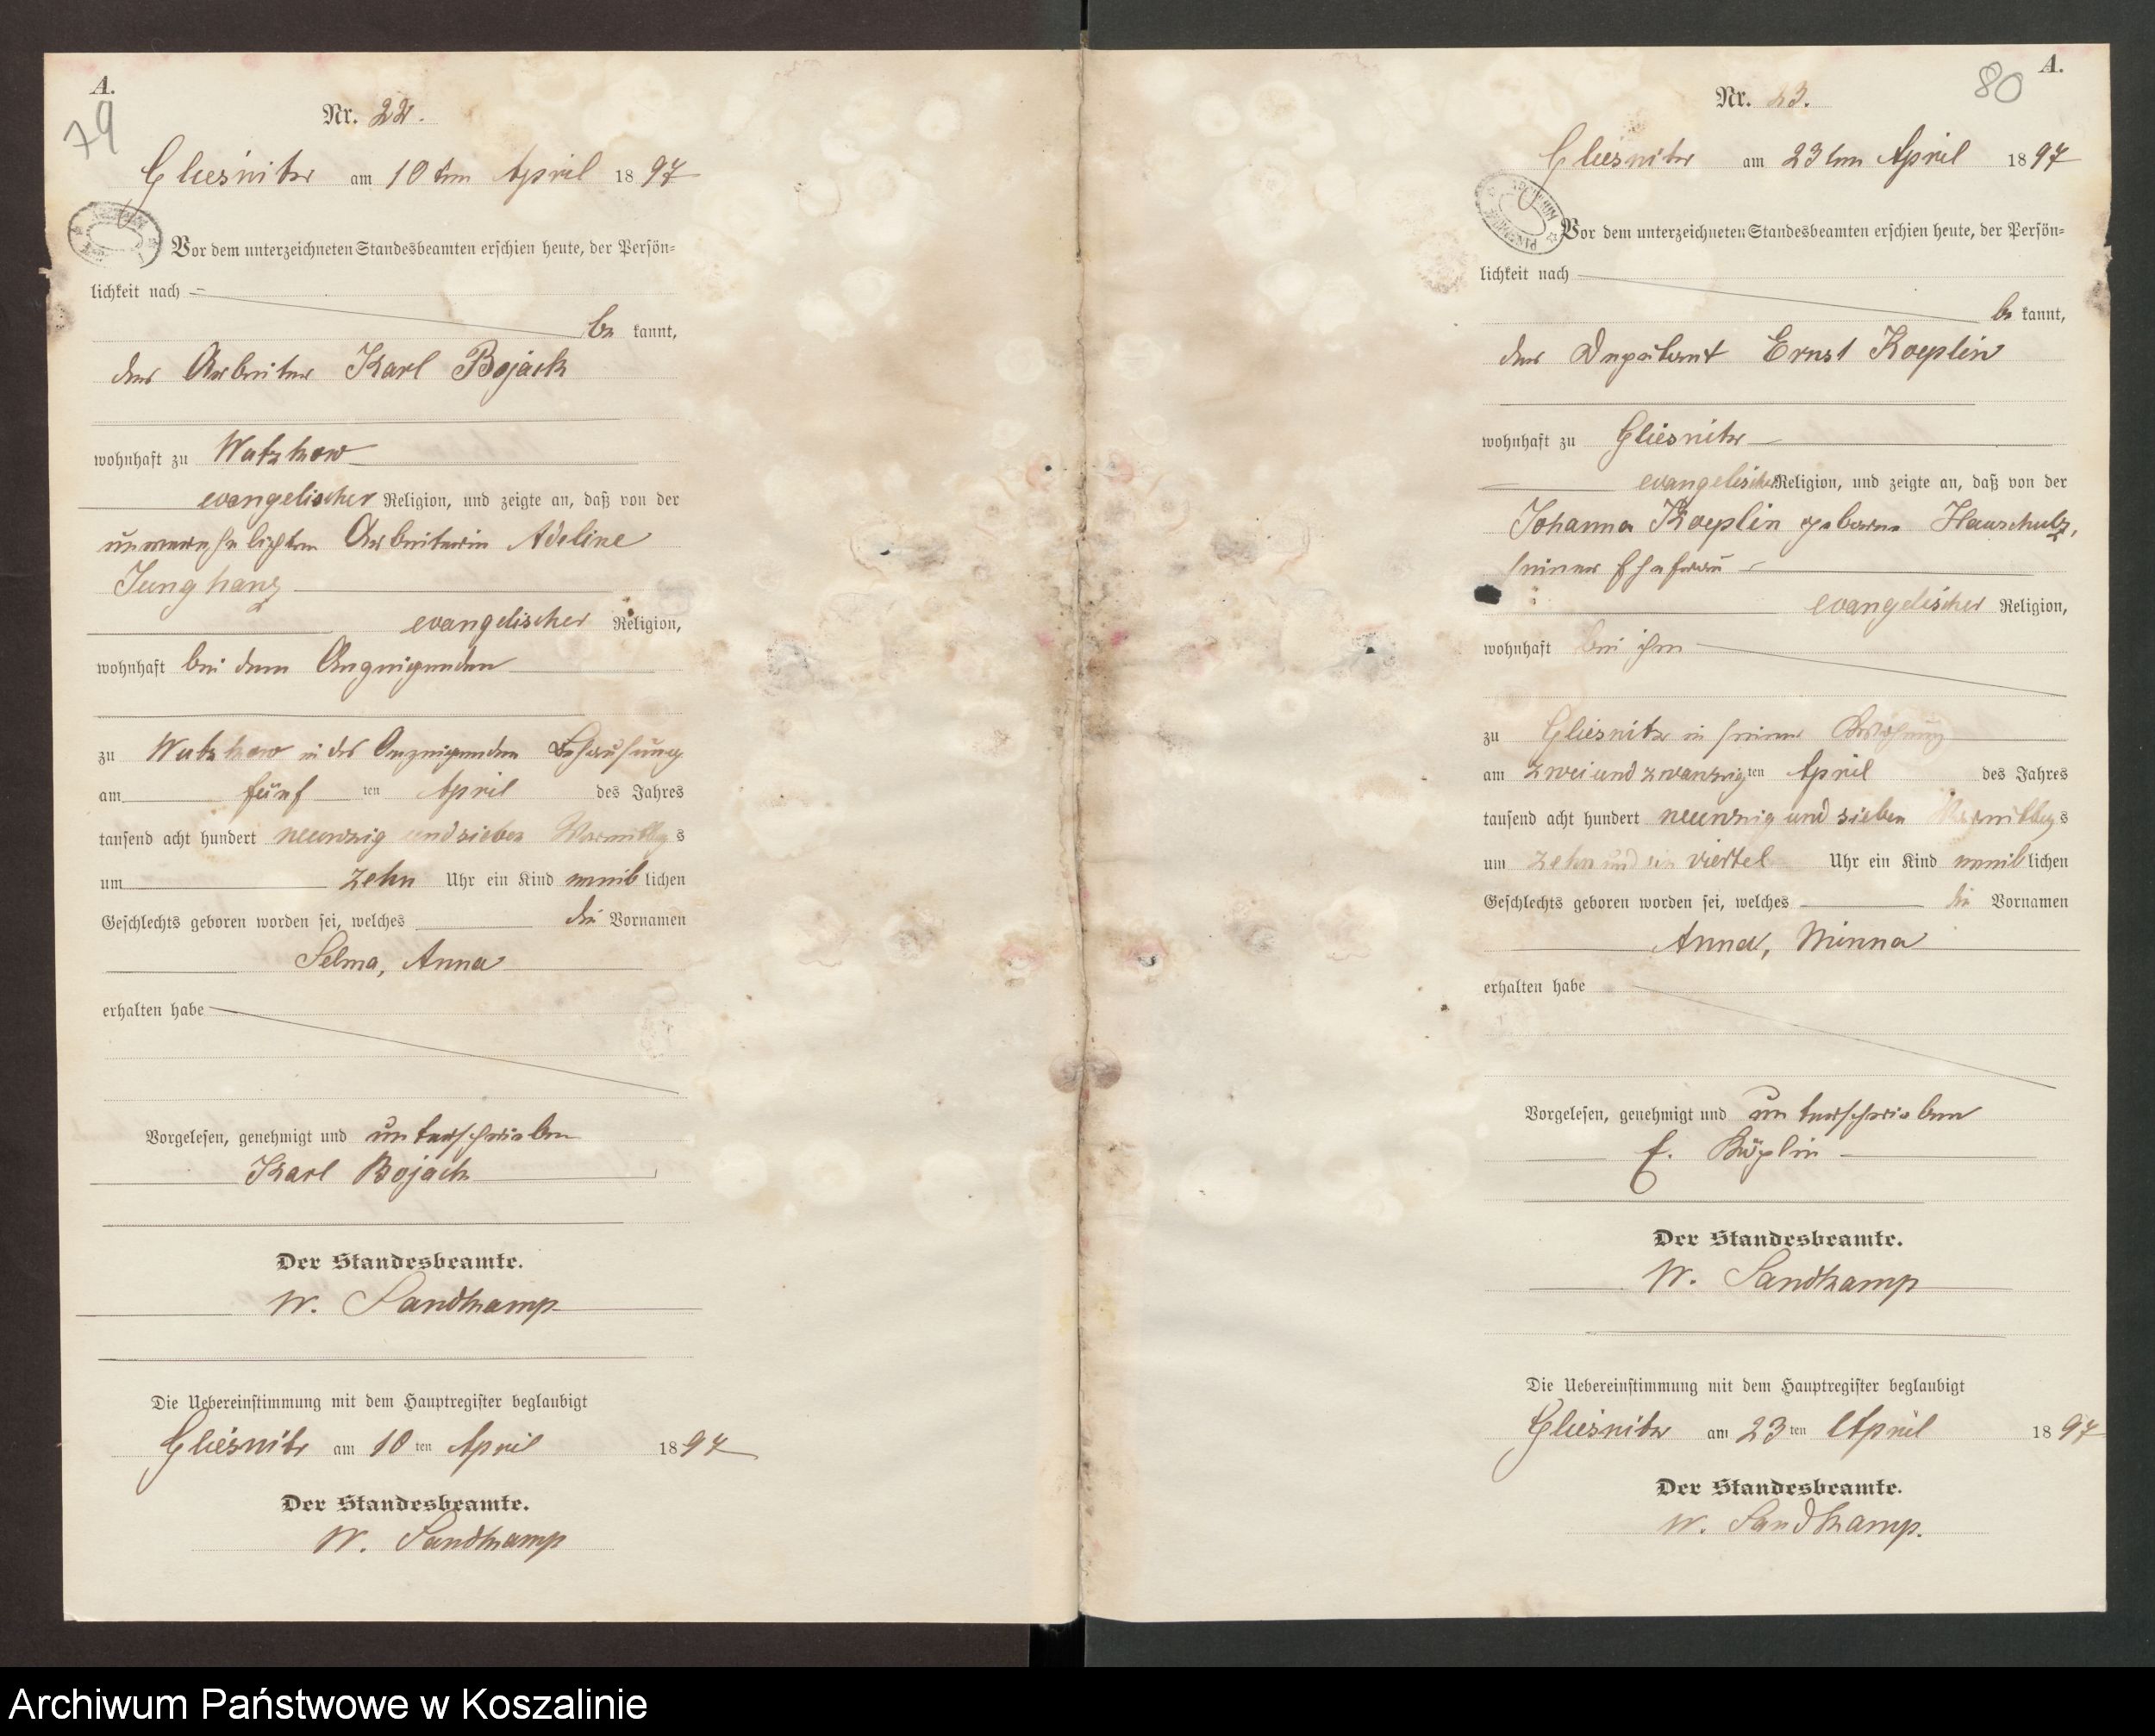 A.
79
Nr. 22.
Gliesnitz am 10ten April 1897
Vor dem unterzeichneten Standesbeamten erschien heute, der Persön=
lichkeit nach
be kannt,
der Arbeiter Karl Bojack
wohnhaft zu Watzkow
evangelischer Religion, und zeigte an, daß von der
unverehelichten Arbeiterin Adeline
Junghanz
evangelischer Religion,
wohnhaft bei dem Anzeigenden
zu Watzkow in des Anzeigenden Behausung
am fünf ten April des Jahres
tausend acht hundert neunzig und sieben Vormittags
um zehn Uhr ein Kind weiblichen
Geschlechts geboren worden sei, welches die Vornamen
Selma, Anna
erhalten habe
Vorgelesen, genehmigt und unterschrieben
Karl Bojack
Der Standesbeamte.
W. Sandkamp
Die Uebereinstimmung mit dem Hauptregister beglaubigt
Gliesnitz am 10 ten April 1897
Der Standesbeamte.
W. Sandkamp
A.
80
Nr. 23.
Gliesnitz am 23ten April 1897
Vor dem unterzeichneten Standesbeamten erschien heute, der Persön=
lichkeit nach
be kannt,
der Deputant Ernst Koeplin
wohnhaft zu Gliesnitz
evangelischer Religion, und zeigte an, daß von der
Johanna Koeplin geborne Hauschulz,
seiner Ehefrau
evangelischer Religion,
wohnhaft bei ihm
zu Gliesnitz in seiner Wohnung
am zwei und zwanzigten April des Jahres
tausend acht hundert neunzig und sieben Vormittags
um zehn und ein viertel Uhr ein Kind weiblichen
Geschlechts geboren worden sei, welches die Vornamen
Anna, Minna
erhalten habe
Vorgelesen, genehmigt und unterschrieben
E. Köplin
Der Standesbeamte.
W. Sandkamp
Die Uebereinstimmung mit dem Hauptregister beglaubigt
Gliesnitz am 23 ten April 1897
Der Standesbeamte.
W. Sandkamp.
Archiwum Państwowe w Koszalinie